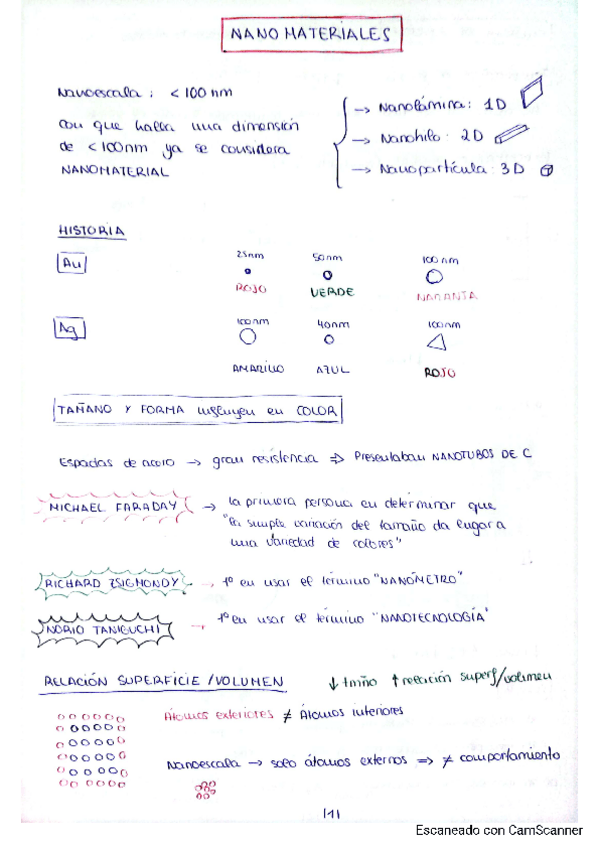 NANOMATERIALES
Nanoescala: < 100 nm
Con que halla una dimensión
de < 100nm ya se considera
NANOMATERIAL
→ Nanolámina: 1D
→ Nanohilo: 2D
→ Nanopartícula: 3D
HISTORIA
Au
25nm 50nm 100nm
ROJO VERDE NARANJA
Ag
100nm 40nm 100nm
AMARILLO AZUL ROJO
TAMAÑO Y FORMA influyen en COLOR
Espadas de acero → gran resistencia ⇒ Presentaban NANOTUBOS DE C
MICHAEL FARADAY → la primera persona en determinar que
"la simple variación del tamaño da lugar a
una variedad de colores"
RICHARD ZSIGMONDY → 1º en usar el término "NANÓMETRO"
NORIO TANIGUCHI → 1º en usar el término "NANOTECNOLOGÍA"
RELACIÓN SUPERFICIE/VOLUMEN ↓ tmño ↑ relación superf/volumen
Átomos exteriores ≠ Átomos interiores
Nanoescala → solo átomos externos => ≠ comportamiento
|1|
Escaneado con CamScanner